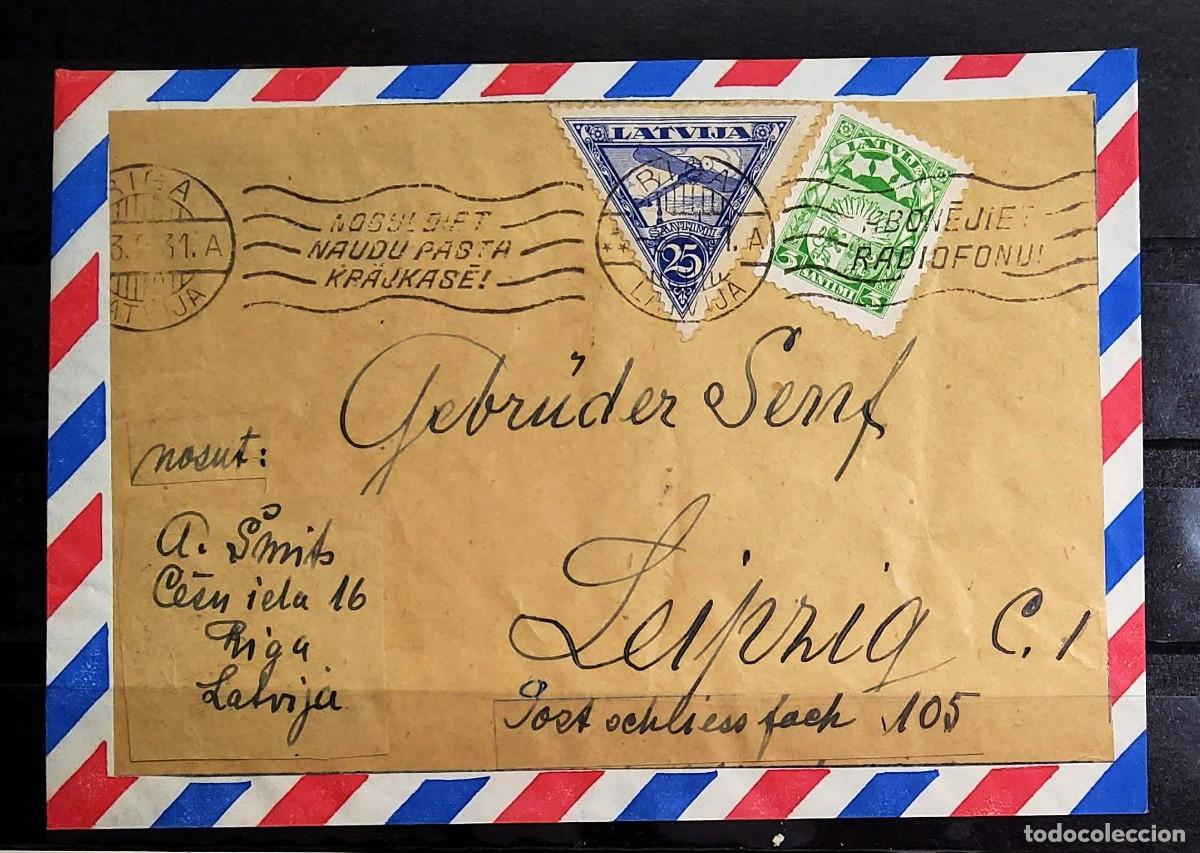 LATVIJA
SANTIMI
25
LATVIJA
5 SANTIMI 5
RIGA
31. A
LATVIJA
NOGULDIET
NAUDU PASTA
KRĀJKASĒ!
RIGA
A
LATVIJA
ABONĒJIET
RADIOFONU!
Gebrüder Senf
nosut:
A. Šmits
Cēsu iela 16
Riga
Latvija
Leipzig C. 1
Postschliessfach 105
todocoleccion